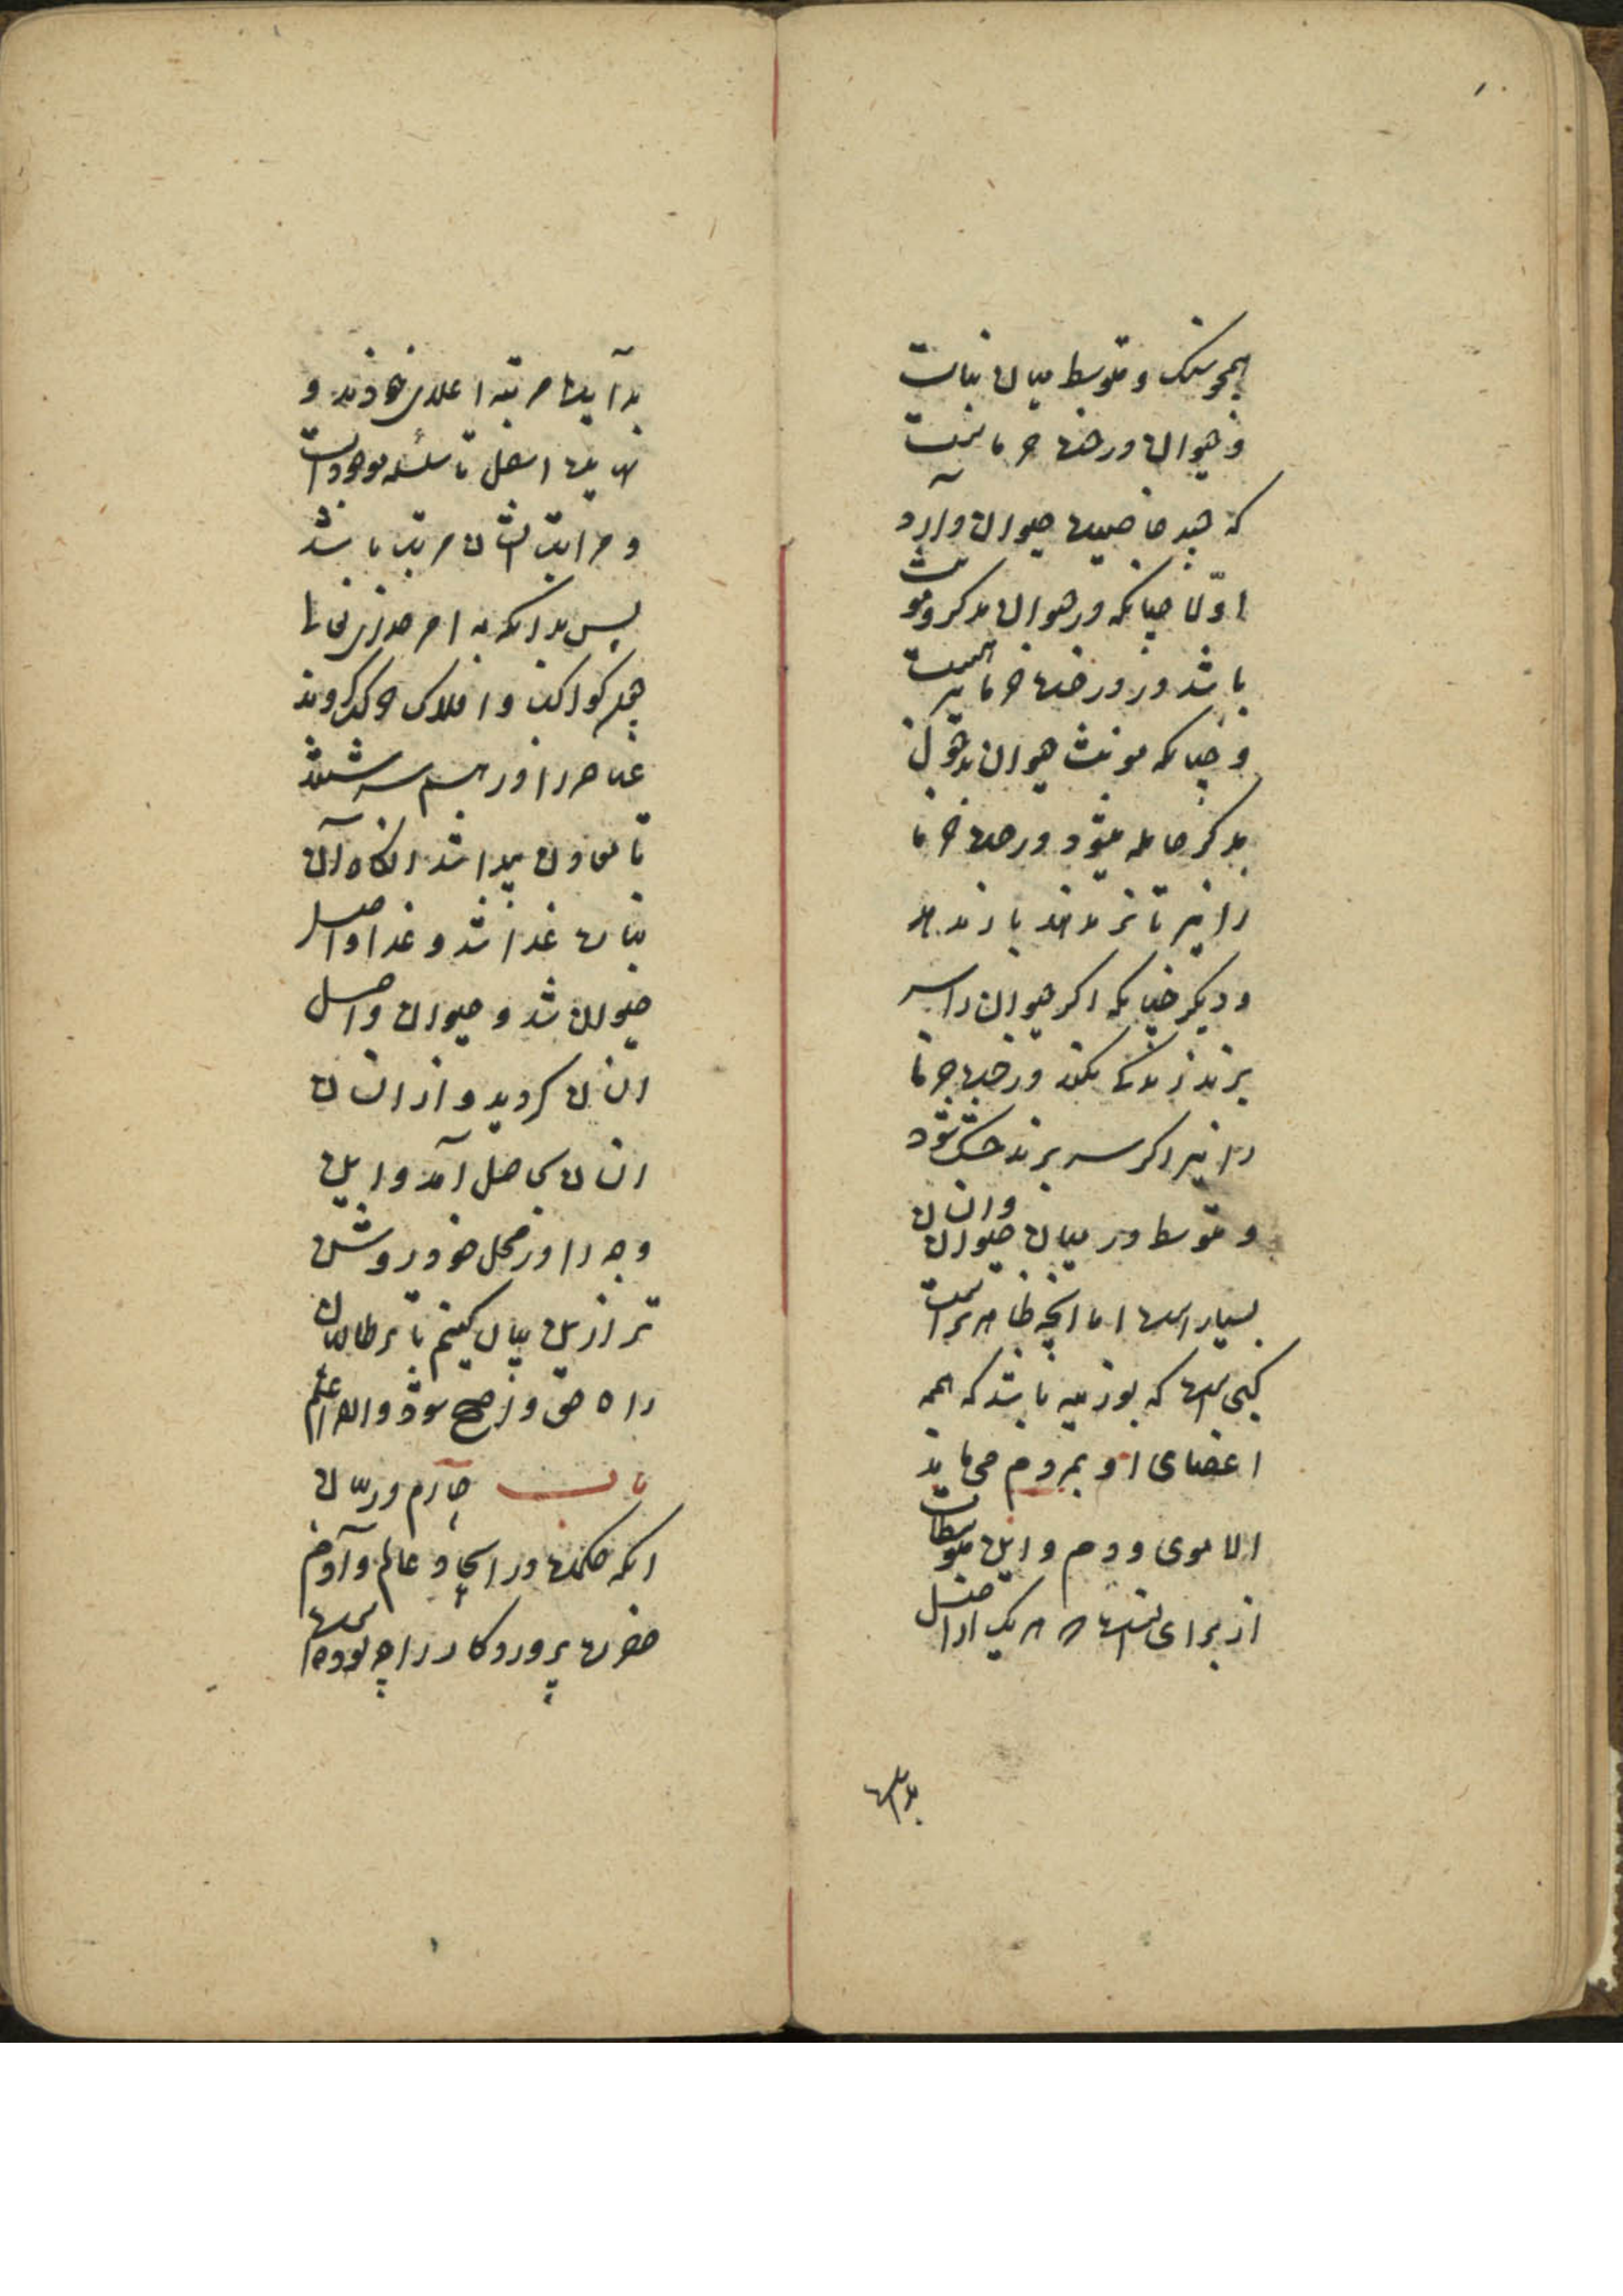 همچو سنک و متوسط میان نبات
و حیوان درخت خرماست
که چند خاصیت حیوان دارد
اوّلا چنانکه در حیوان مذکر و مونث
باشد در درخت خرما نیز هست
و چنانکه مونث حیوان بدخول
مذکر حامله میشود درخت خرما
را نیز تا نر ندهند بار ندهد
و دیکر چنانکه اکر حیوان را سر
برند زندکی نکند درخت خرما
را نیز اکر سر برند خشک شود
و متوسط در میان حیوان و انسان
بسیار است اما انچه ظاهرتر است
یکی است که بوزینه باشد که همه
اعضای او بمردم می ماند
الا موی و دم و این متوسطات
از برای انست که هر یک از اسفل
بدایت
بدایت مرتبه اعلای خودند و
نهایت اسفل تا سلسله موجودات
و مراتب ایشان مرتب باشد
پس بدانکه به امر خدای تعالی
جمله کواکب و افلاک حرکت کردند
عناصر را در هم سرشتند
تا معادن پیدا شد انکاه آن
نبات غذا شد و غذا واصل
حیوان شد و حیوان واصل
انسان کردید و از انسان
انسان کامل آمد و این
وجه را در محل خود روشن
تر ازین بیان کنیم تا بر طالبان
راه حق واضح شود والله اعلم
باب چهارم در بیان
انکه حکمت در ایجاد عالم و آدم
حضرت پروردکار را چه بوده است